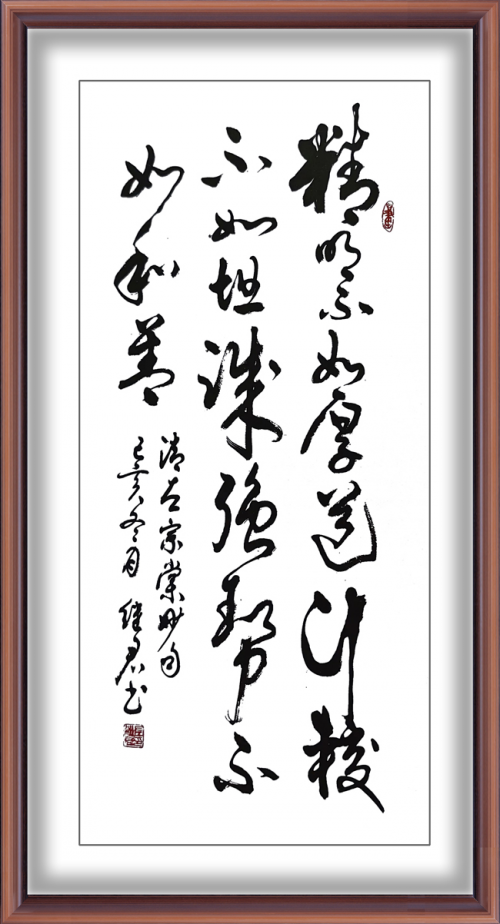 精明不如厚道计较
不如坦诚强势不
如和善
清左宗棠妙句
己亥冬月继君书